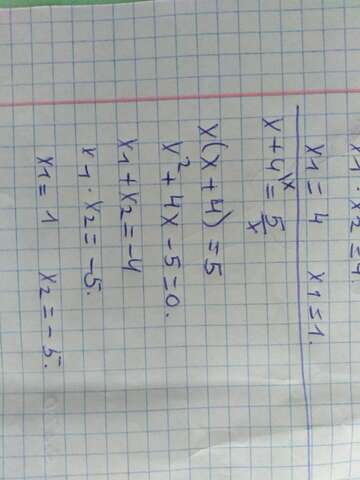 x1 · x2 = 4.
x1 = 4 x1 = 1.
x + 4 \x = 5/x
x(x + 4) = 5
x² + 4x - 5 = 0.
x1 + x2 = -4
x1 · x2 = -5.
x1 = 1 x2 = -5.